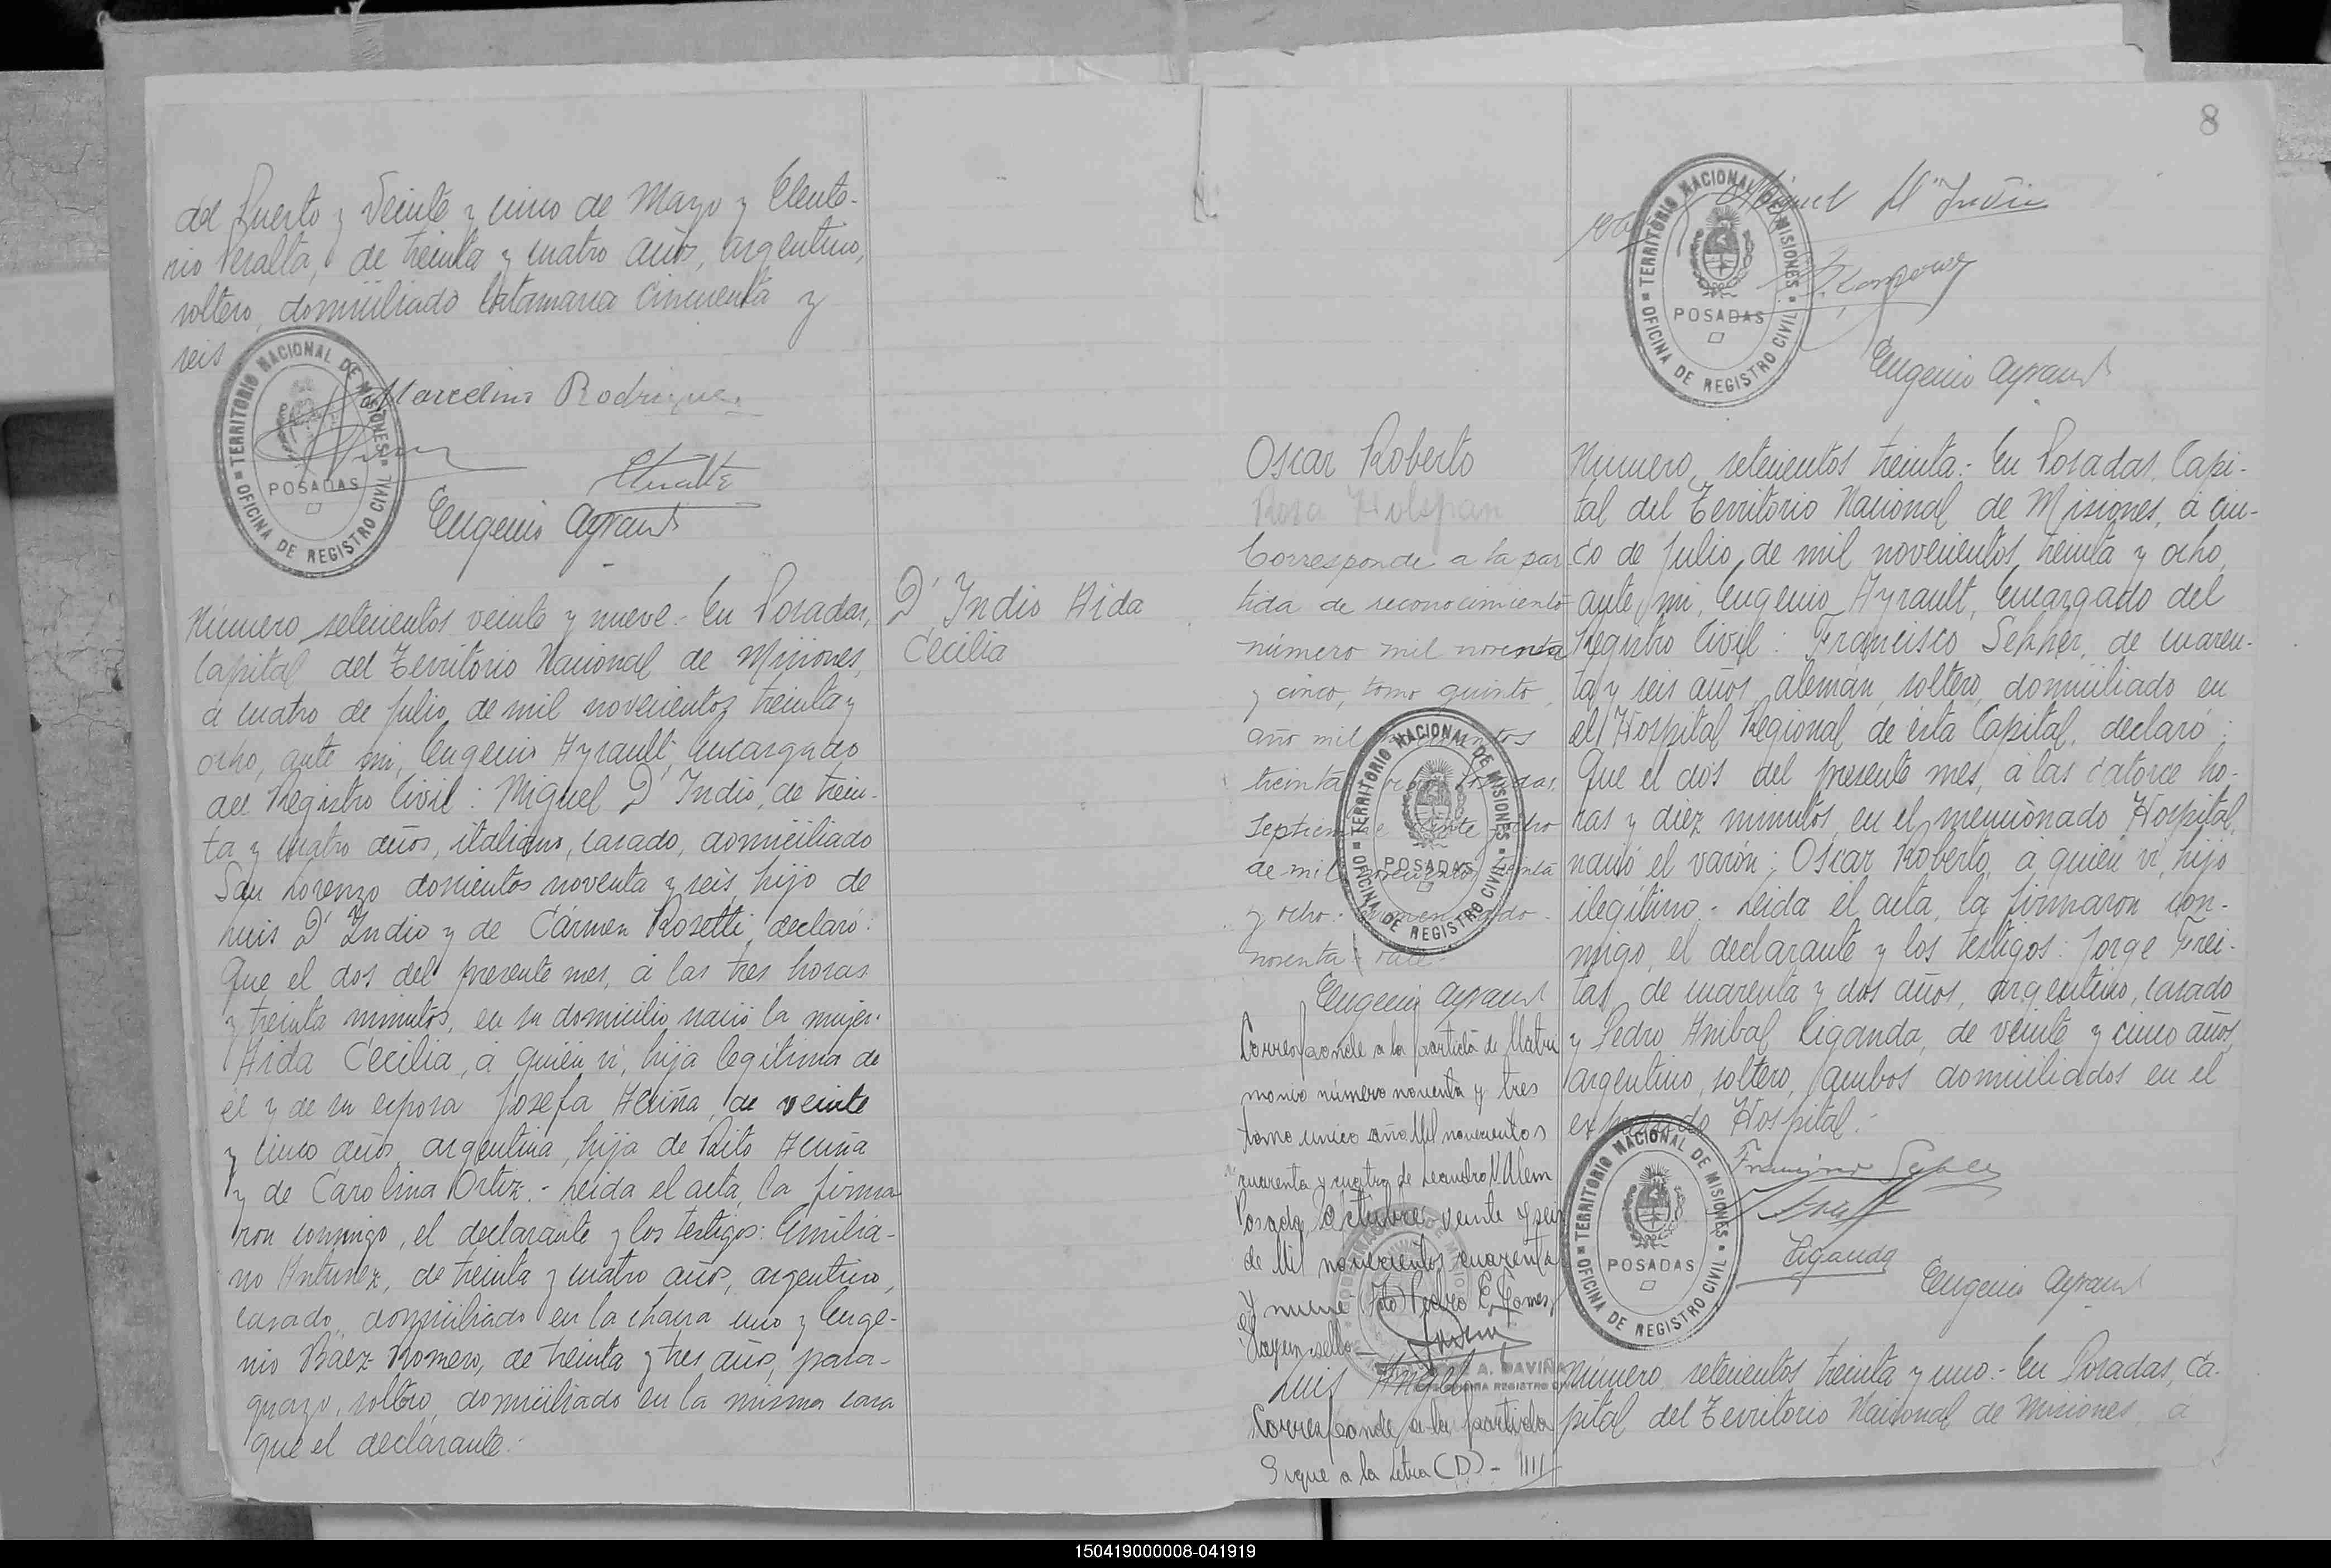 del Puerto y Veinte y cinco de Mayo y Eleute-
rio Peralta, de treinta y cuatro años, argentino,
soltero, domiciliado Catamarca Cincuenta y
seis
TERRITORIO NACIONAL DE MISIONES
POSADAS
OFICINA DE REGISTRO CIVIL
Marcelino Rodriguez
Eugenio Ayrault
Número setecientos veinte y nueve.- En Posadas,
Capital del Territorio Nacional de Misiones,
á cuatro de Julio de mil novecientos treinta y
ocho, ante mi, Eugenio Ayrault, encargado
del Registro Civil: Miguel D'Indio, de trein-
ta y cuatro años, italiano, casado, domiciliado
San Lorenzo doscientos noventa y seis, hijo de
Luis D'Indio y de Cármen Rosetti, declaró:
Que el dos del presente mes, á las tres horas
y treinta minutos, en su domicilio nació la mujer:
Aida Cecilia, á quién ví, hija legítima de
él y de su esposa Josefa Acuña, de veinte
y cinco años, argentina, hija de Rito Acuña
y de Carolina Ortiz.- Leida el acta, la firma
ron conmigo, el declarante y los testigos: Emilia-
no Antunez, de treinta y cuatro años, argentino,
casado, domiciliado en la chacra uno y Euge-
nio Báez Romero, de treinta y tres años, para-
guayo, soltero, domiciliado en la misma casa
que el declarante.-
D'Indio Aida
Cecilia
8
Miguel D'Indio
TERRITORIO NACIONAL DE MISIONES
POSADAS
OFICINA DE REGISTRO CIVIL
Eugenio Ayrault
Oscar Roberto
Rosa Holspan
Corresponde a la par
tida de reconocimiento
número mil noventa
y cinco, tomo quinto,
año mil
treinta
Septiembre
de mil novecientos treinta
y ocho.-
noventa - vale.
TERRITORIO NACIONAL DE MISIONES
POSADAS
OFICINA DE REGISTRO CIVIL
Eugenio Ayrault
Corresponde a la partida de Matri
monio número noventa y tres
tomo unico año Mil novecientos
cuarenta y cuatro de Leandro N. Alem
Posadas, Octubre veinte y seis
de Mil novecientos cuarenta
y nueve (Fdo) Pedro E. Gomes,
Hay un sello
Luis Angel
Corresponde a la partida
Sigue a la Letra (D) -
Número setecientos treinta.- En Posadas, Capi-
tal del Territorio Nacional de Misiones, á cin-
co de Julio de mil novecientos treinta y ocho,
ante mi, Eugenio Ayrault, Encargado del
Registro Civil: Francisco Sehher, de cuaren-
ta y seis años, alemán, soltero, domiciliado en
el Hospital Regional de ésta Capital, declaró:
Que el dos del presente mes, á las catorce ho-
ras y diez minutos, en el mencionado Hospital,
nació el varón: Oscar Roberto, á quién ví, hijo
ilegítimo.- Leida el acta, la firmaron con-
migo, el declarante y los testigos: Jorge Frei-
tas, de cuarenta y dos años, argentino, casado
y Pedro Anibal Ciganda, de veinte y cinco años,
argentino, soltero, ambos domiciliados en el
expresado Hospital.-
TERRITORIO NACIONAL DE MISIONES
POSADAS
OFICINA DE REGISTRO CIVIL
Ciganda
Eugenio Ayrault
Número setecientos treinta y uno.- En Posadas, Ca-
pital del Territorio Nacional de Misiones, á
150419000008-041919